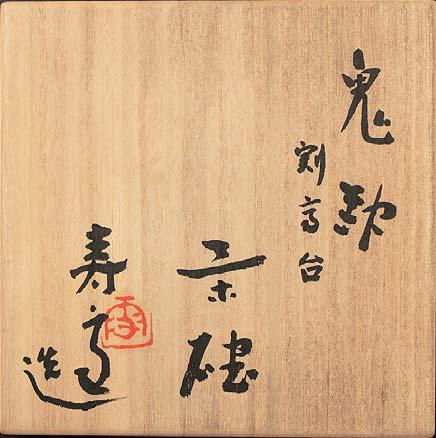 鬼萩
割高台
茶碗
寿雪造